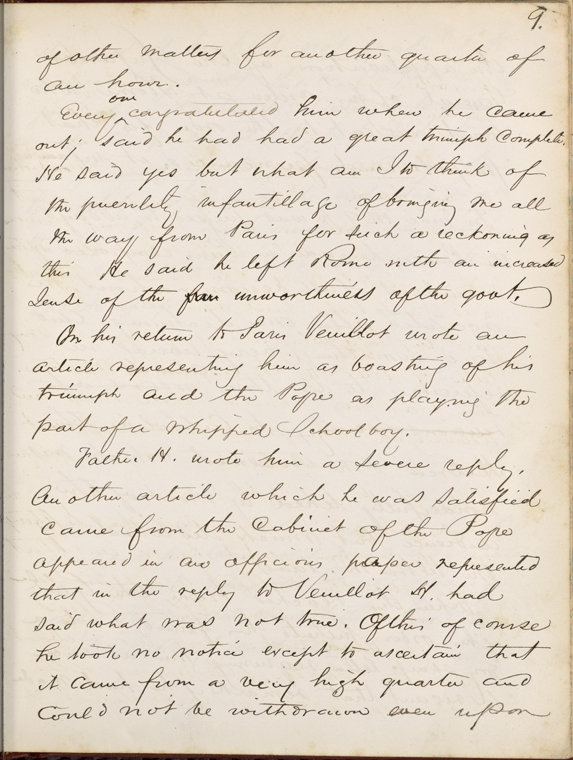 9.
of other matters for another quarter of
an hour.
Every one congratulated him when he came
out; said he had had a great triumph complete.
He said yes but what am I to think of
the puerility infantillage of bringing me all
the way from Paris for such a reckoning as
this He said he left Rome with an increased
sense of the unworthiness of the govt.
On his return to Paris Veuillot wrote an
article representing him as boasting of his
triumph and the Pope as playing the
part of a whipped Schoolboy.
Father H. wrote him a severe reply.
Another article which he was satisfied
came from the Cabinet of the Pope
appeared in an officious paper represented
that in the reply to Veuillot H. had
said what was not true. Of this of course
he took no notice except to ascertain that
it came from a very high quarter and
could not be withdrawn even upon